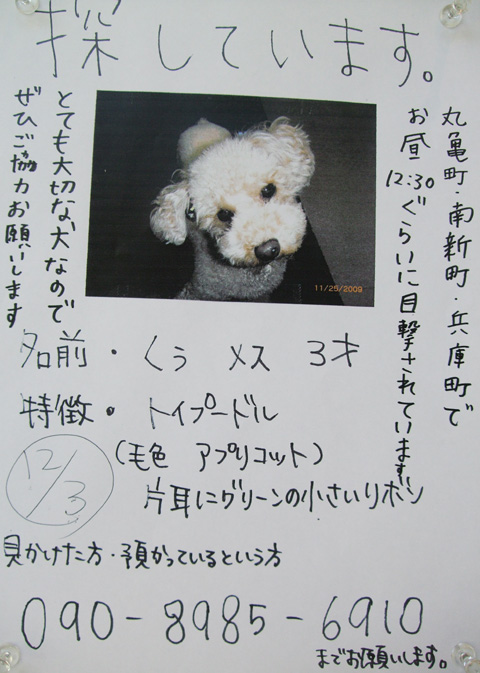 探しています。
丸亀町・南新町・兵庫町で
お昼12:30ぐらいに目撃されています
とても大切な犬なので
ぜひご協力お願いします
11/25/2009
名前・くぅ メス 3才
特徴・トイプードル
(毛色 アプリコット)
片耳にグリーンの小さいリボン
12/3
見かけた方・預かっているという方
090-8985-6910
までお願いします。